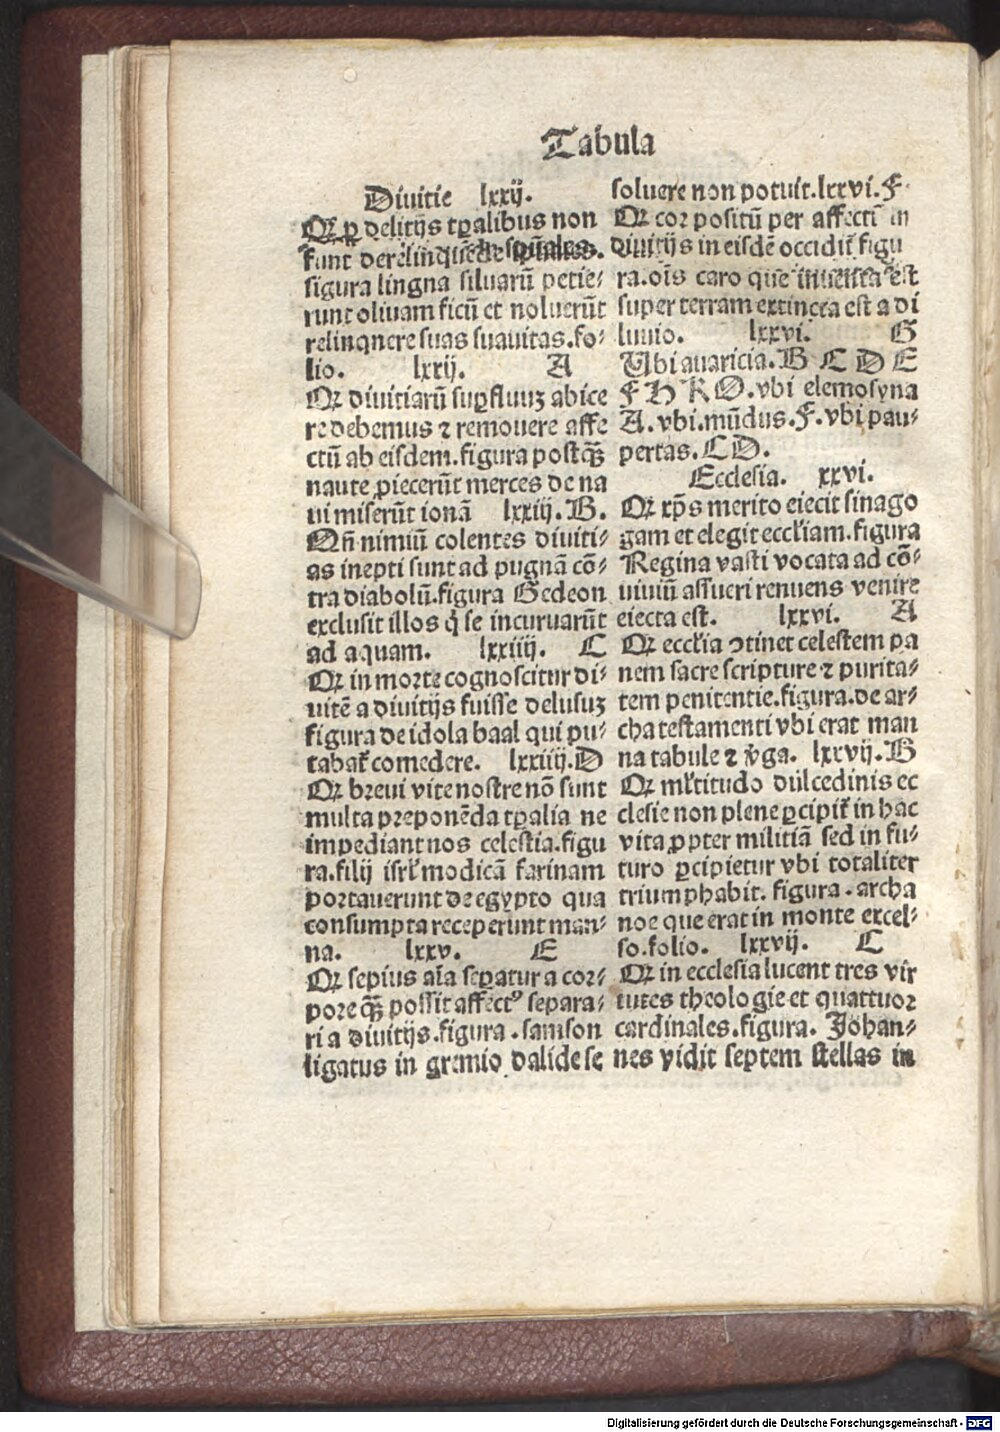 Tabula
Diuitie lxxij.
Qꝛ ꝓ delitijs tꝑalibus non
sunt derelinquēde spūales.
figura lingna siluarū petie⸗
runt oliuam ficū et noluerūt
relinqnere suas suauitas.fo⸗
lio. lxxij. A
Qꝛ diuitiarū suꝑfluuꝫ abice
re debemus ⁊ remouere affe
ctū ab eisdem.figura postqꝫ̄
naute ꝓiecerūt merces de na
ui miserūt ionā lxxiij. B.
Qn̄ nimiū colentes diuiti⸗
as inepti sunt ad pugnā cō⸗
tra diabolū.figura Gedeon
exclusit illos q̇ se incuruarūt
ad aquam. lxxiiij. C
Qꝛ in morte cognoscitur di⸗
uitē a diuitijs fuisse delusuꝫ
figura de idola baal qui pu⸗
tabat᷑ comedere. lxxiiij. D
Qꝛ breui vite nostre nō sunt
multa preponēda tꝑalia ne
impediant nos celestia.figu
ra.filij isrl᷑ modicā farinam
portauerunt de egypto qua
consumpta receperunt man⸗
na. lxxv. E
Qꝛ sepius aīa seꝑatur a cor⸗
pore qꝫ̄ possit affectꝰ separa⸗
ri a diuitijs.figura.samson
ligatus in gremio dalide se
soluere non potuit.lxxvi.F.
Qꝛ cor positū per affectū in
diuitijs in eisdē occidit᷑ figu
ra.oīs caro que inuenta est
super terram extincta est a di
luuio. lxxvi. G
Ubi auaricia. B C D E
F H K O.vbi elemosyna
A.vbi.mūdus.F.vbi pau⸗
pertas.C D.
Ecclesia. xxvi.
Qꝛ xp̄s merito eiecit sinago
gam et elegit eccl᷑iam.figura
Regina vasti vocata ad cō⸗
uiuiū assueri renuens venire
eiecta est. lxxvi. A
Qꝛ eccl᷑ia ↄtinet celestem pa
nem sacre scripture ⁊ purita⸗
tem penitentie.figura.de ar⸗
cha testamenti vbi erat man
na tabule ⁊ v̇ga. lxxvij. B
Qꝛ ml᷑titudo dulcedinis ec
clesie non plene ꝑcipit᷑ in hac
vita ꝓpter militiā sed in fu⸗
turo ꝑcipietur vbi totaliter
triumphabit. figura.archa
noe que erat in monte excel⸗
so.folio. lxxvij. C
Qꝛ in ecclesia lucent tres vir
tutes theologie et quattuor
cardinales.figura. Johan⸗
nes vidit septem stellas in
Digitalisierung gefördert durch die Deutsche Forschungsgemeinschaft - DFG